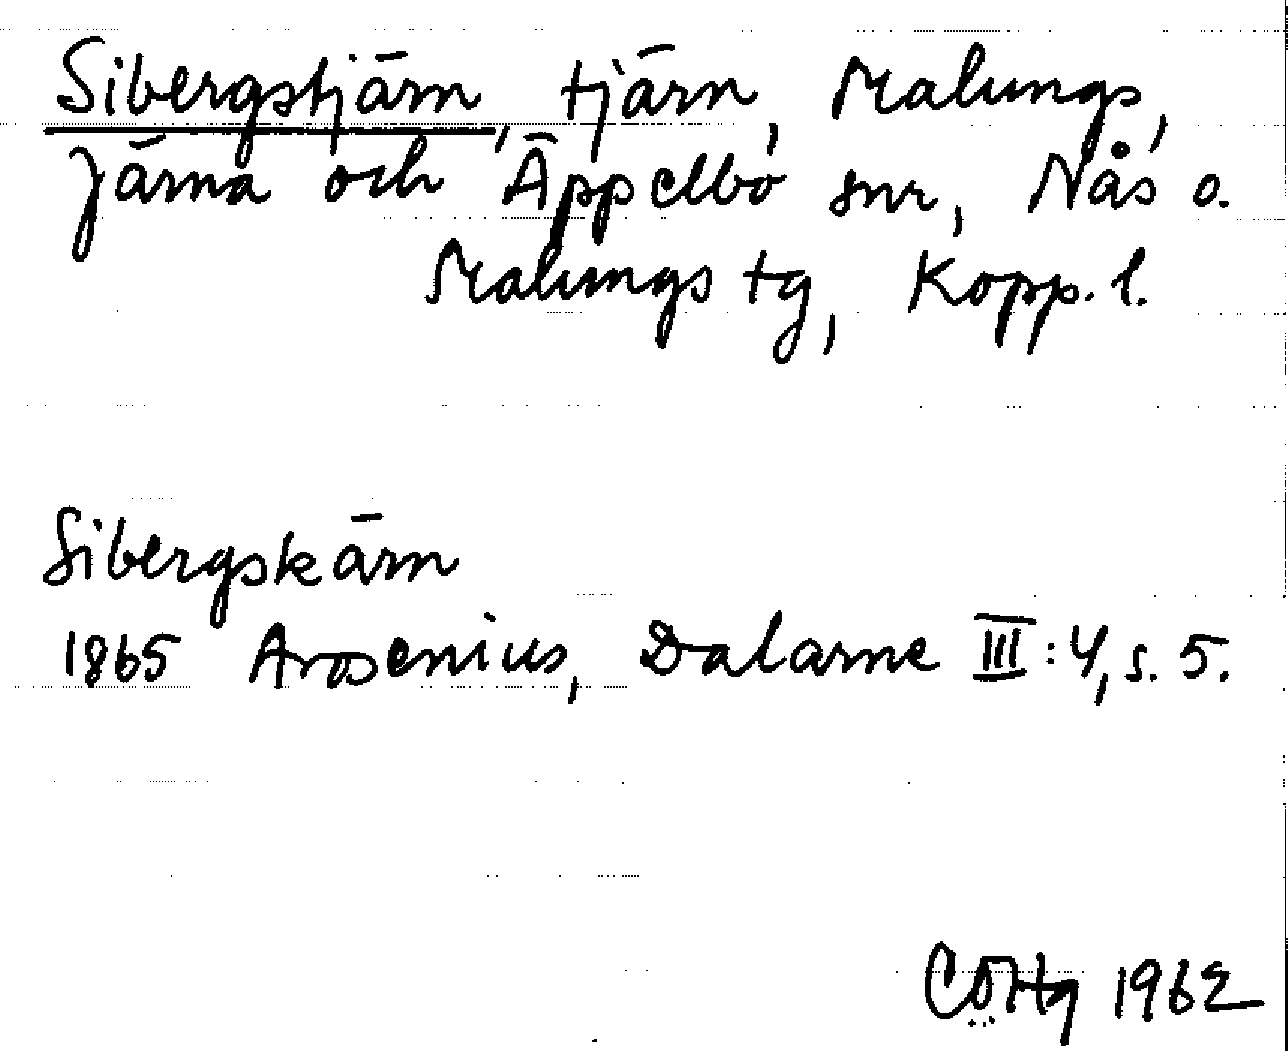 Sibergstjärn, tjärn, Malungs,
Järna och Äppelbo snr, Nås o.
Malungs tg, Kopp. l.
Sibergskärn
1865 Arosenius, Dalarne III:4, s. 5.
CÖHg 1962